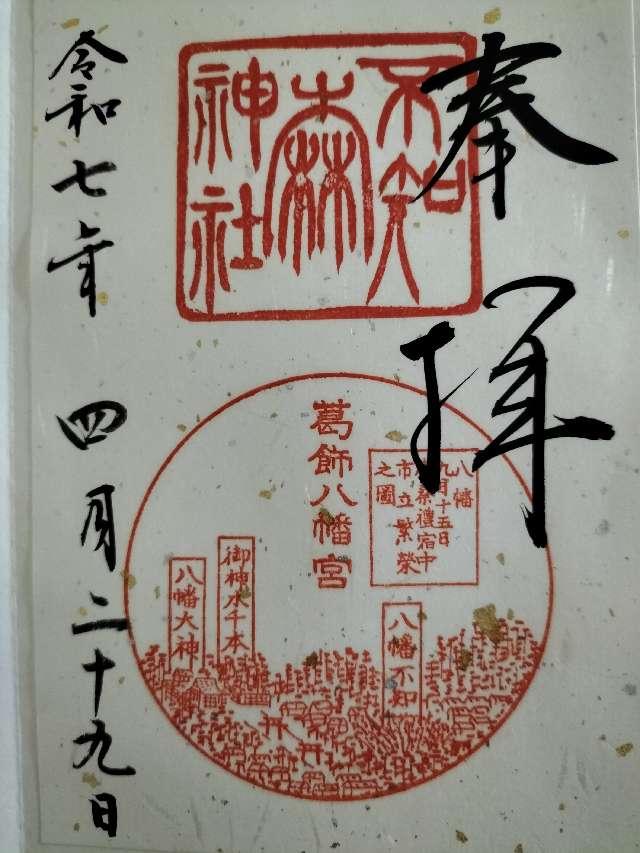 奉拝
不知
森
神社
葛飾八幡宮
八幡
九月十五日
祭禮宿中
市立繁榮
之圖
八幡不知
御神木千本
八幡大神
令和七年 四月二十九日